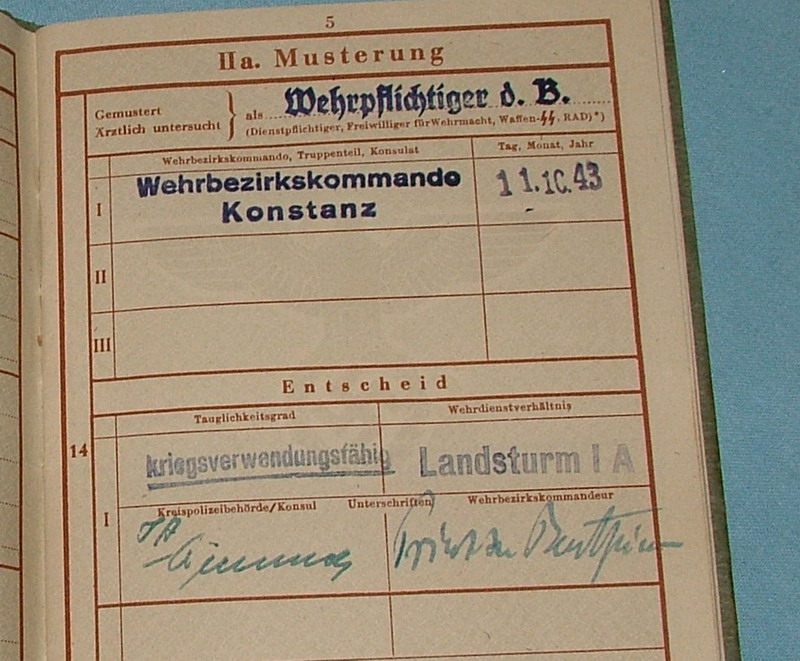 5
IIa. Musterung
Gemustert
Ärztlich untersucht
als Wehrpflichtiger d. B.
(Dienstpflichtiger, Freiwilliger für Wehrmacht, Waffen-ϟϟ, RAD)*)
Wehrbezirkskommando, Truppenteil, Konsulat
Tag, Monat, Jahr
I
Wehrbezirkskommando
Konstanz
11.10.43
II
III
Entscheid
Tauglichkeitsgrad
Wehrdienstverhältnis
14
kriegsverwendungsfähig
Landsturm I A
I
Kreispolizeibehörde/Konsul
Unterschriften
Wehrbezirkskommandeur